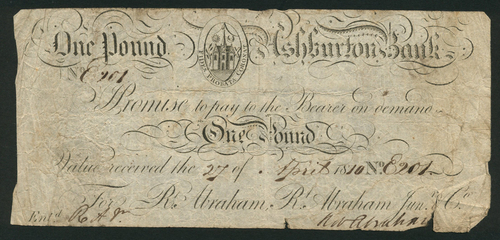 One Pound Ashburton Bank
FIDES PROBATA CORONAT
No C 201
I Promise to pay to the Bearer on demand
One Pound
Value received the 27 of April 1810 No C 201
For Rt. Abraham, Rt. Abraham Junr. & Co.
Entd.
Abraham